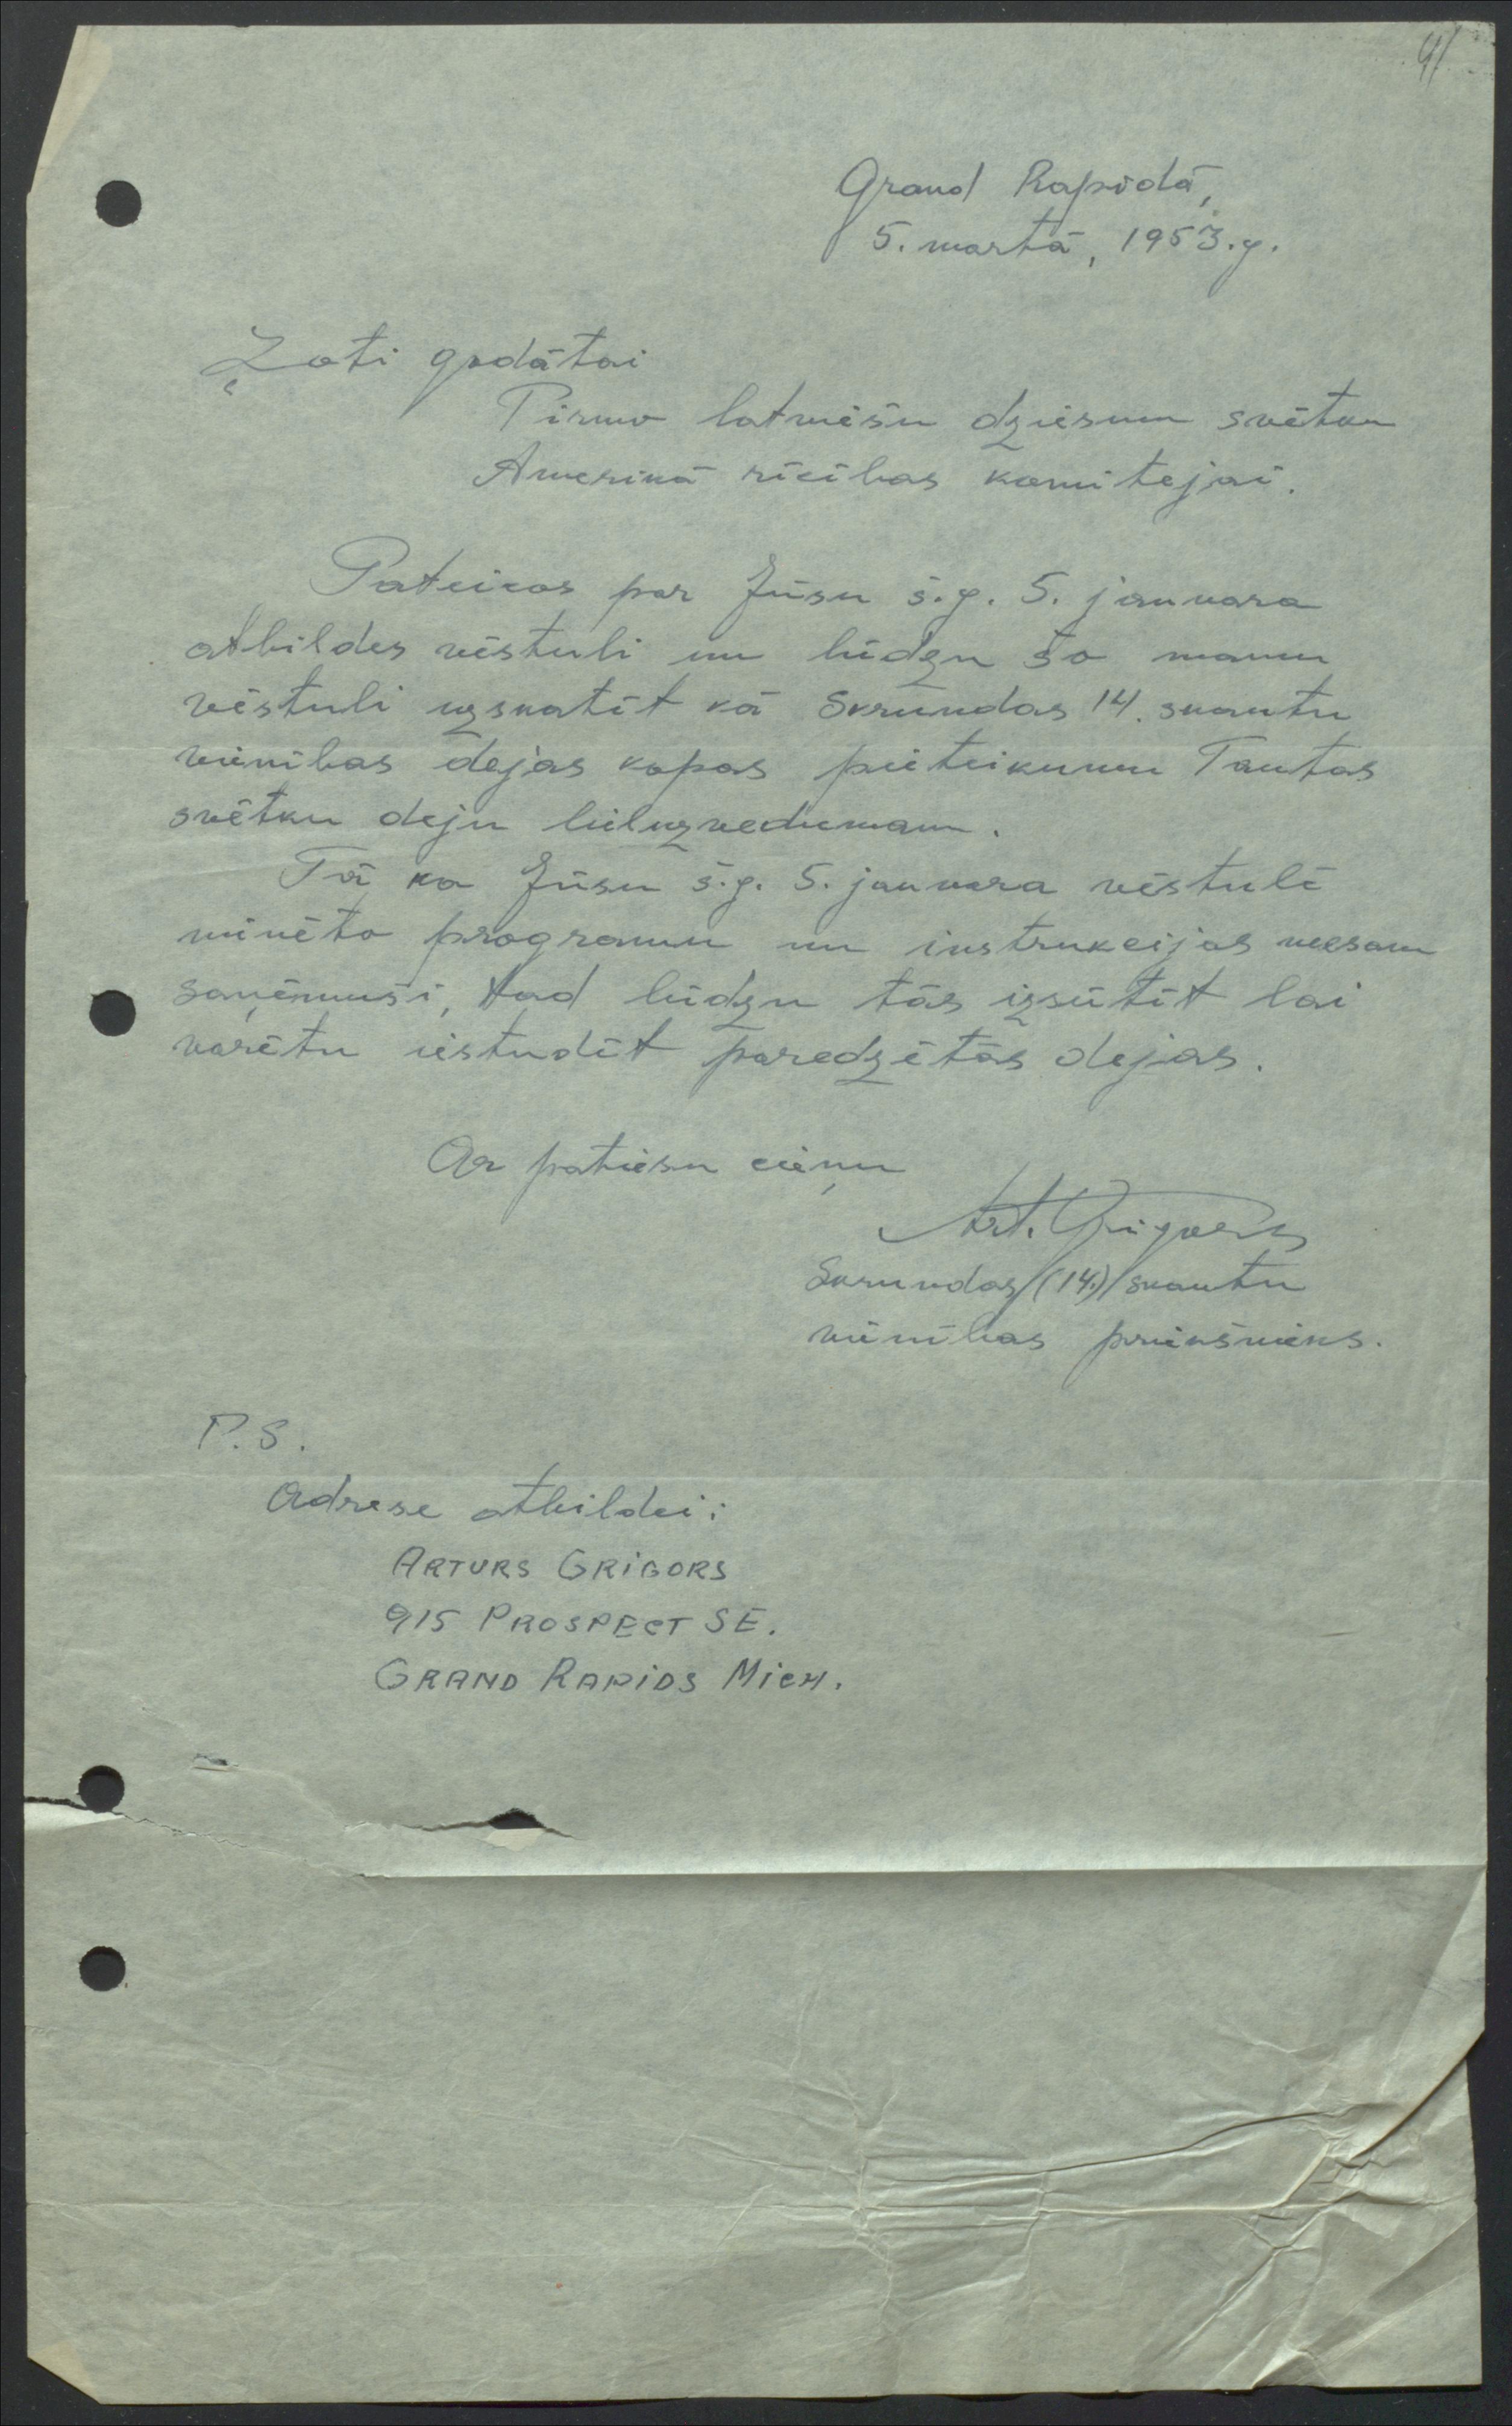 41
Grand Rapidā,
5. martā, 1953.g.
Ļoti godātai
Pirmo latviešu dziesmu svētku
Amerikā rīcības komitejai.
Pateicos par Jūsu š.g. 5. janvara
atbildes vēstuli un lūdzu šo manu
vēstuli uzskatīt kā Skrundas 14. skautu
vienības dejas kopas pieteikumu Tautas
svētku deju lieluzvedumam.
Tā ka Jūsu š.g. 5. janvara vēstulē
minēto programu un instrukcijas neesam
saņēmuši, tad lūdzu tās izsūtīt lai
varētu iestudēt paredzētās dejas.
Ar patiesu cieņu
Art. Grigors
Skrundas (14.) skautu
vienības priekšnieks.
P.S.
Adrese atbildei:
ARTURS GRIGORS
915 PROSPECT SE.
GRAND RAPIDS MICH.